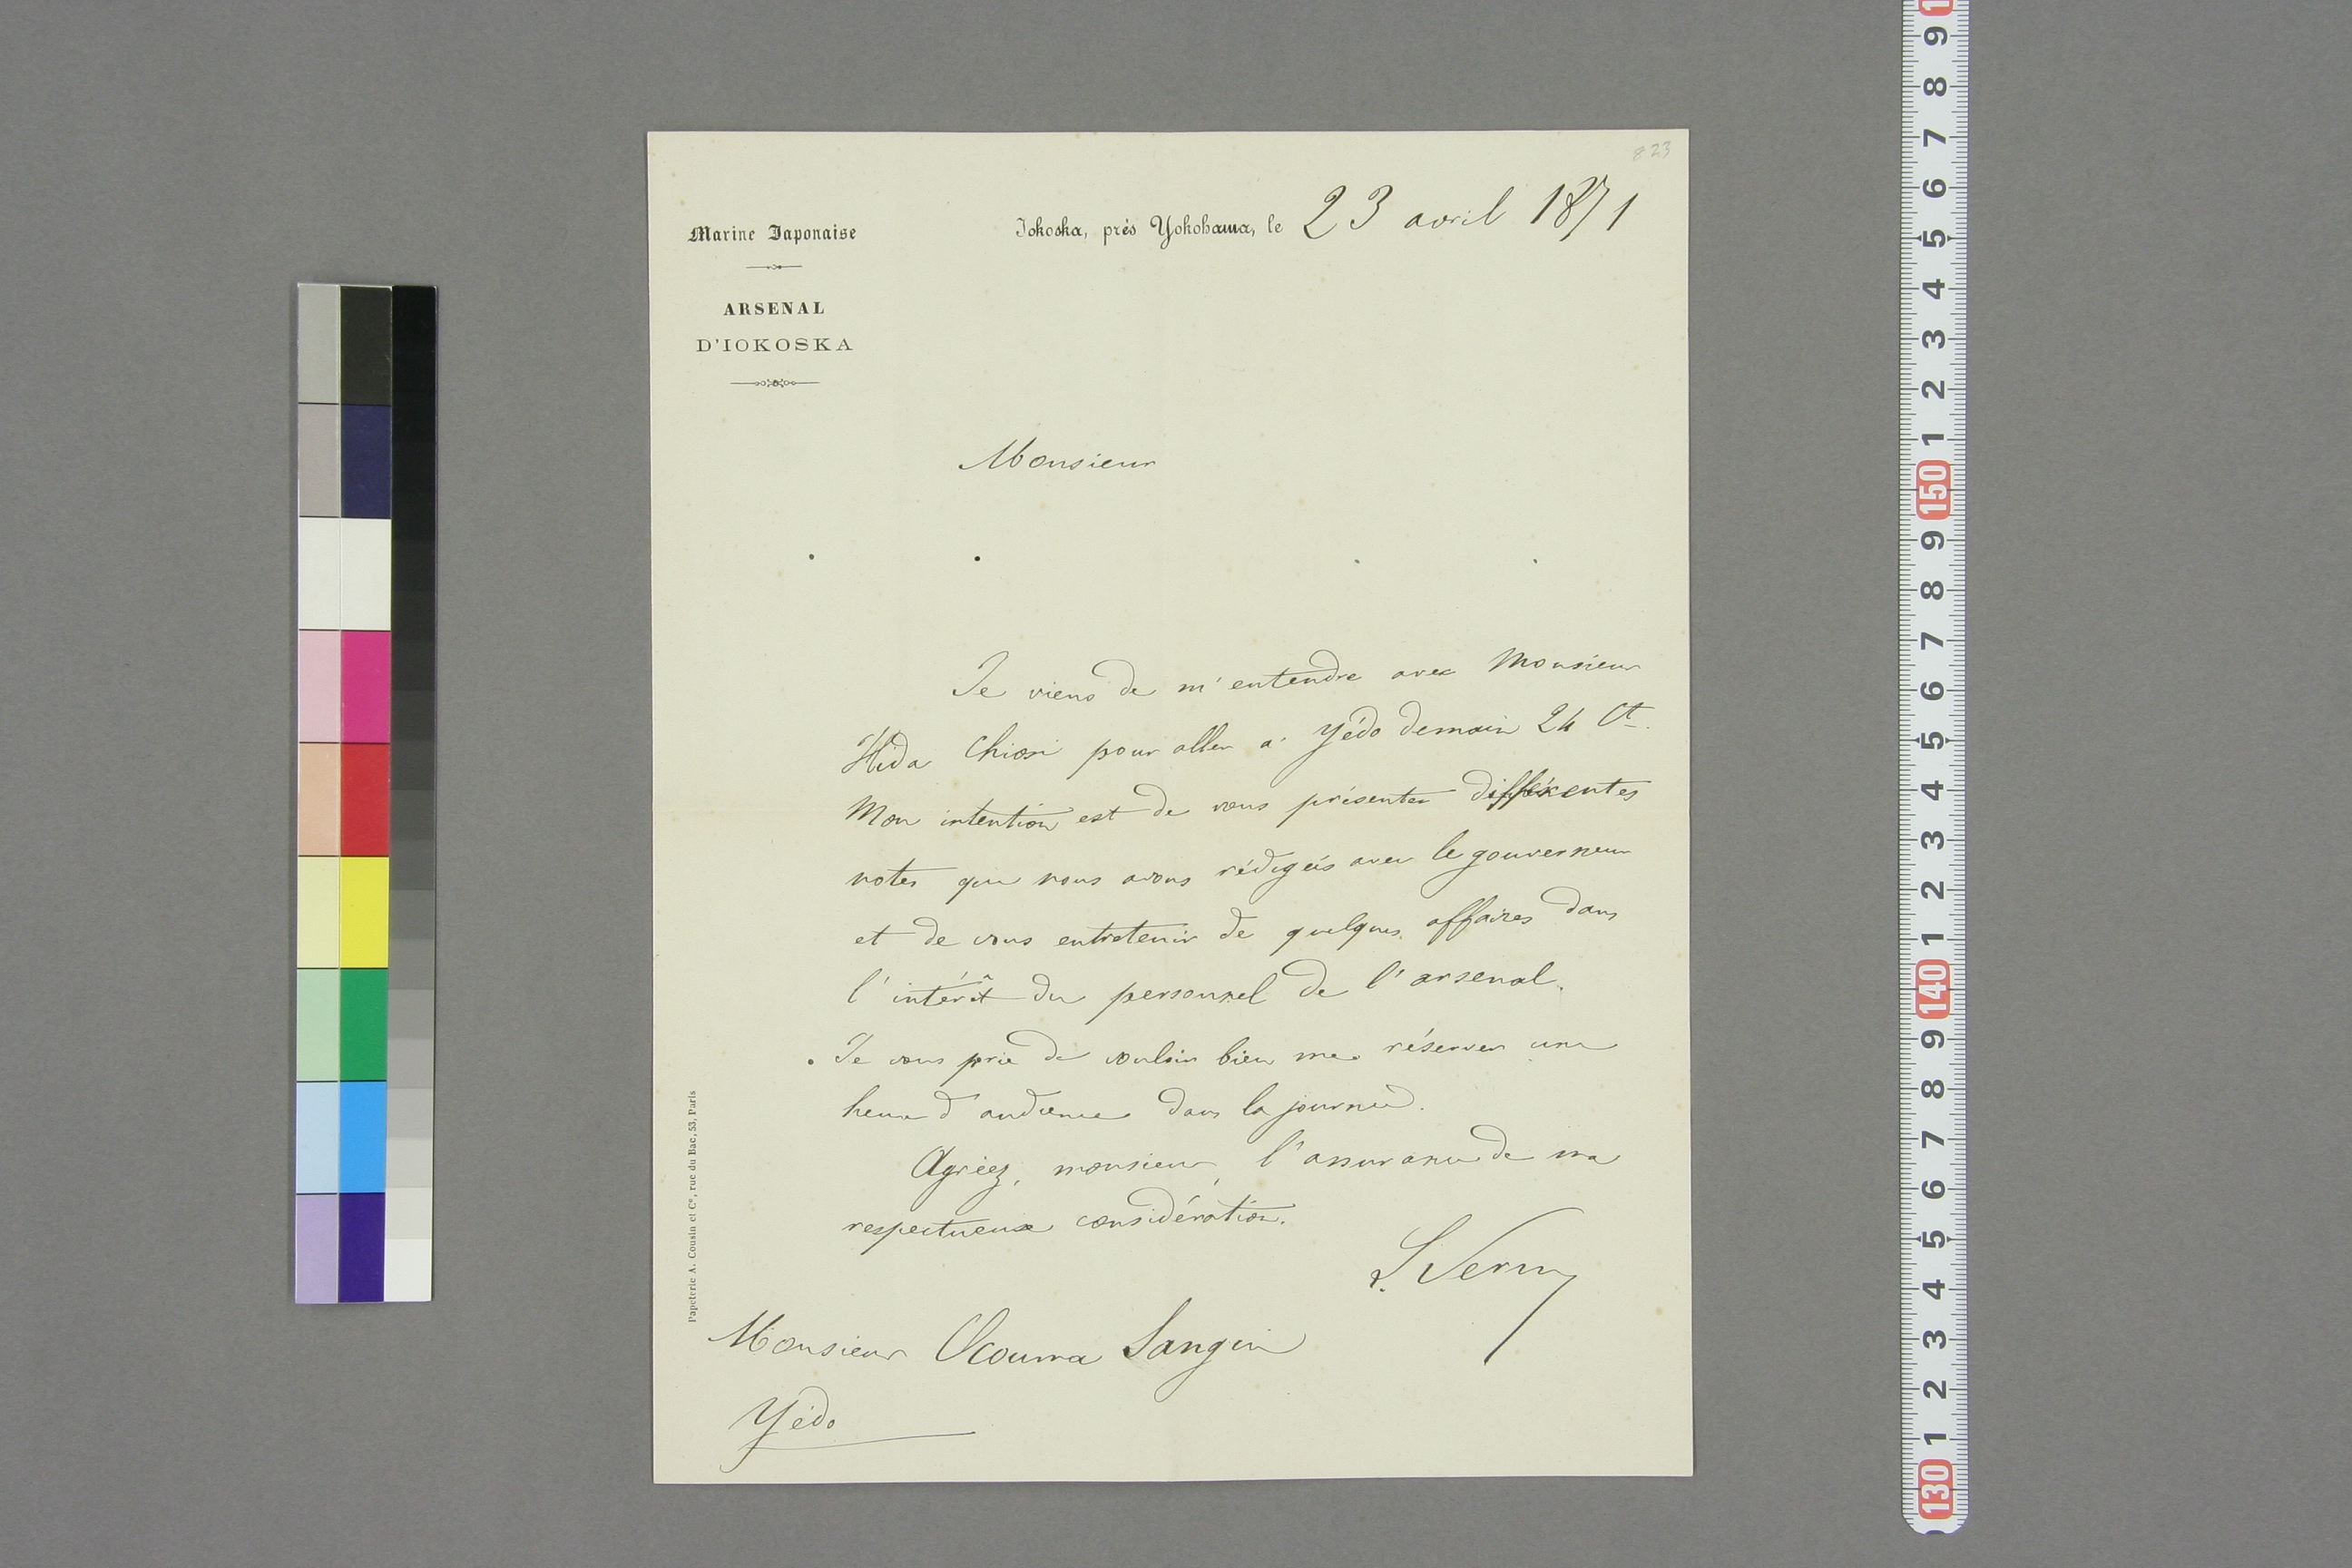 823
Marine Japonaise
Iokoska, près Yokohama, le 23 avril 1871
ARSENAL
D'IOKOSKA
Monsieur
Je viens de m'entendre avec Monsieur
Hida Chiosi pour aller a Yédo demain 24 Ct.
Mon intention est de vous présenter différentes
notes que nous avons rédigées avec le gouverneur
et de vous entretenir de quelques affaires dans
l'intérêt du personnel de l'arsenal.
Je vous prie de vouloir bien me réserver une
heure d'audience dans la journée.
Agréez, monsieur, l'assurance de ma
respectueuse considération.
L. Verny
Monsieur Ocouma Sangui
Yédo
Papeterie A. Cousin et Cie, rue du Bac, 53, Paris
1
9
8
7
6
5
4
3
2
1
150
9
8
7
6
5
4
3
2
1
140
9
8
7
6
5
4
3
2
1
130